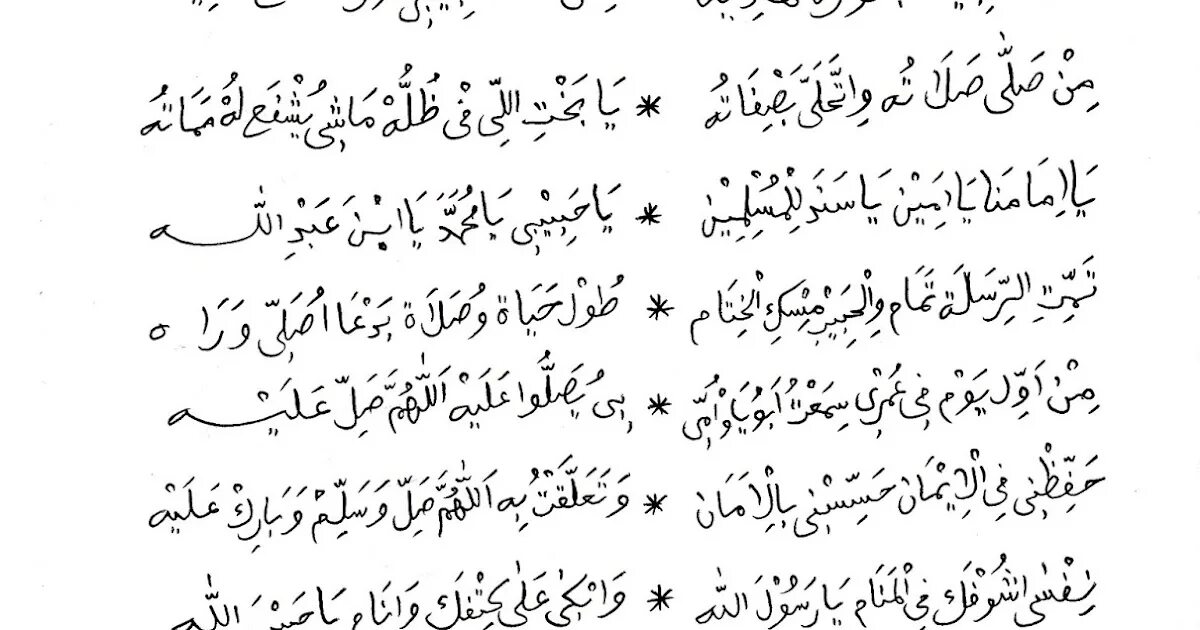 مِنْ صَلَّى صَلَاتُه وِاتْحَلَّى بَصِفَاتُه * يَا بَخْتِ اللِّي فْي ظُلُّهْ مَاشِي يُشْفَع لُهْ مَمَاتُه
يَا اِمَامَنَا يَا اَمِيْن يَا سَنَدَ لِلْمُسْلِمِيْن * يَا حَبِيْبِي يَا مُحَمَّدَ يَا ابْنَ عَبْدِ اللّٰه
تَمِّتِ الرِّسَلَة تَمَام وِالْحَبِيْبْ مِسْكِ الْخِتَام * طُوْل حَيَاة وصَلَاة بَدْعَا اُصَلِّي وَرَا ه
مِنْ اَوِّل يَوْم فِي عُمْرِي سِمَعْتُ اَبُويَا وْاُمِّي * بِي يُصَلُّوا عَلَيْهْ اَللّٰهُمَّ صَلِّ عَلَيْه
حَفِّظْنِي فِي الْاِيْمَان حَسِّسْنِي بِالْاَمَان * وَتَعَلَّقْتْ بِه اَللّٰهُمَّ صَلِّ وَسَلِّمْ وَبَارِكْ عَلَيْه
نِفْسِي اشُوْفَك فِي الْمَنَام يَا رَسُوْلَ اللّٰه * وَابْكِي عَلَى كِتْفِك وَانَام يَا حَبِيْبَ اللّٰه